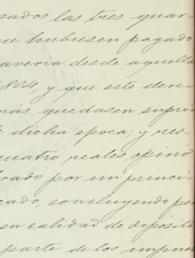 sados las tres quar
que hubiesen pagado
averia desde aquella
1804, y que este dere
más, quedasen supri
dicha época; y res
cuatro reales opinó
cado por un princi
cado, concluyendo po
en calidad de depósito
parte de los impues